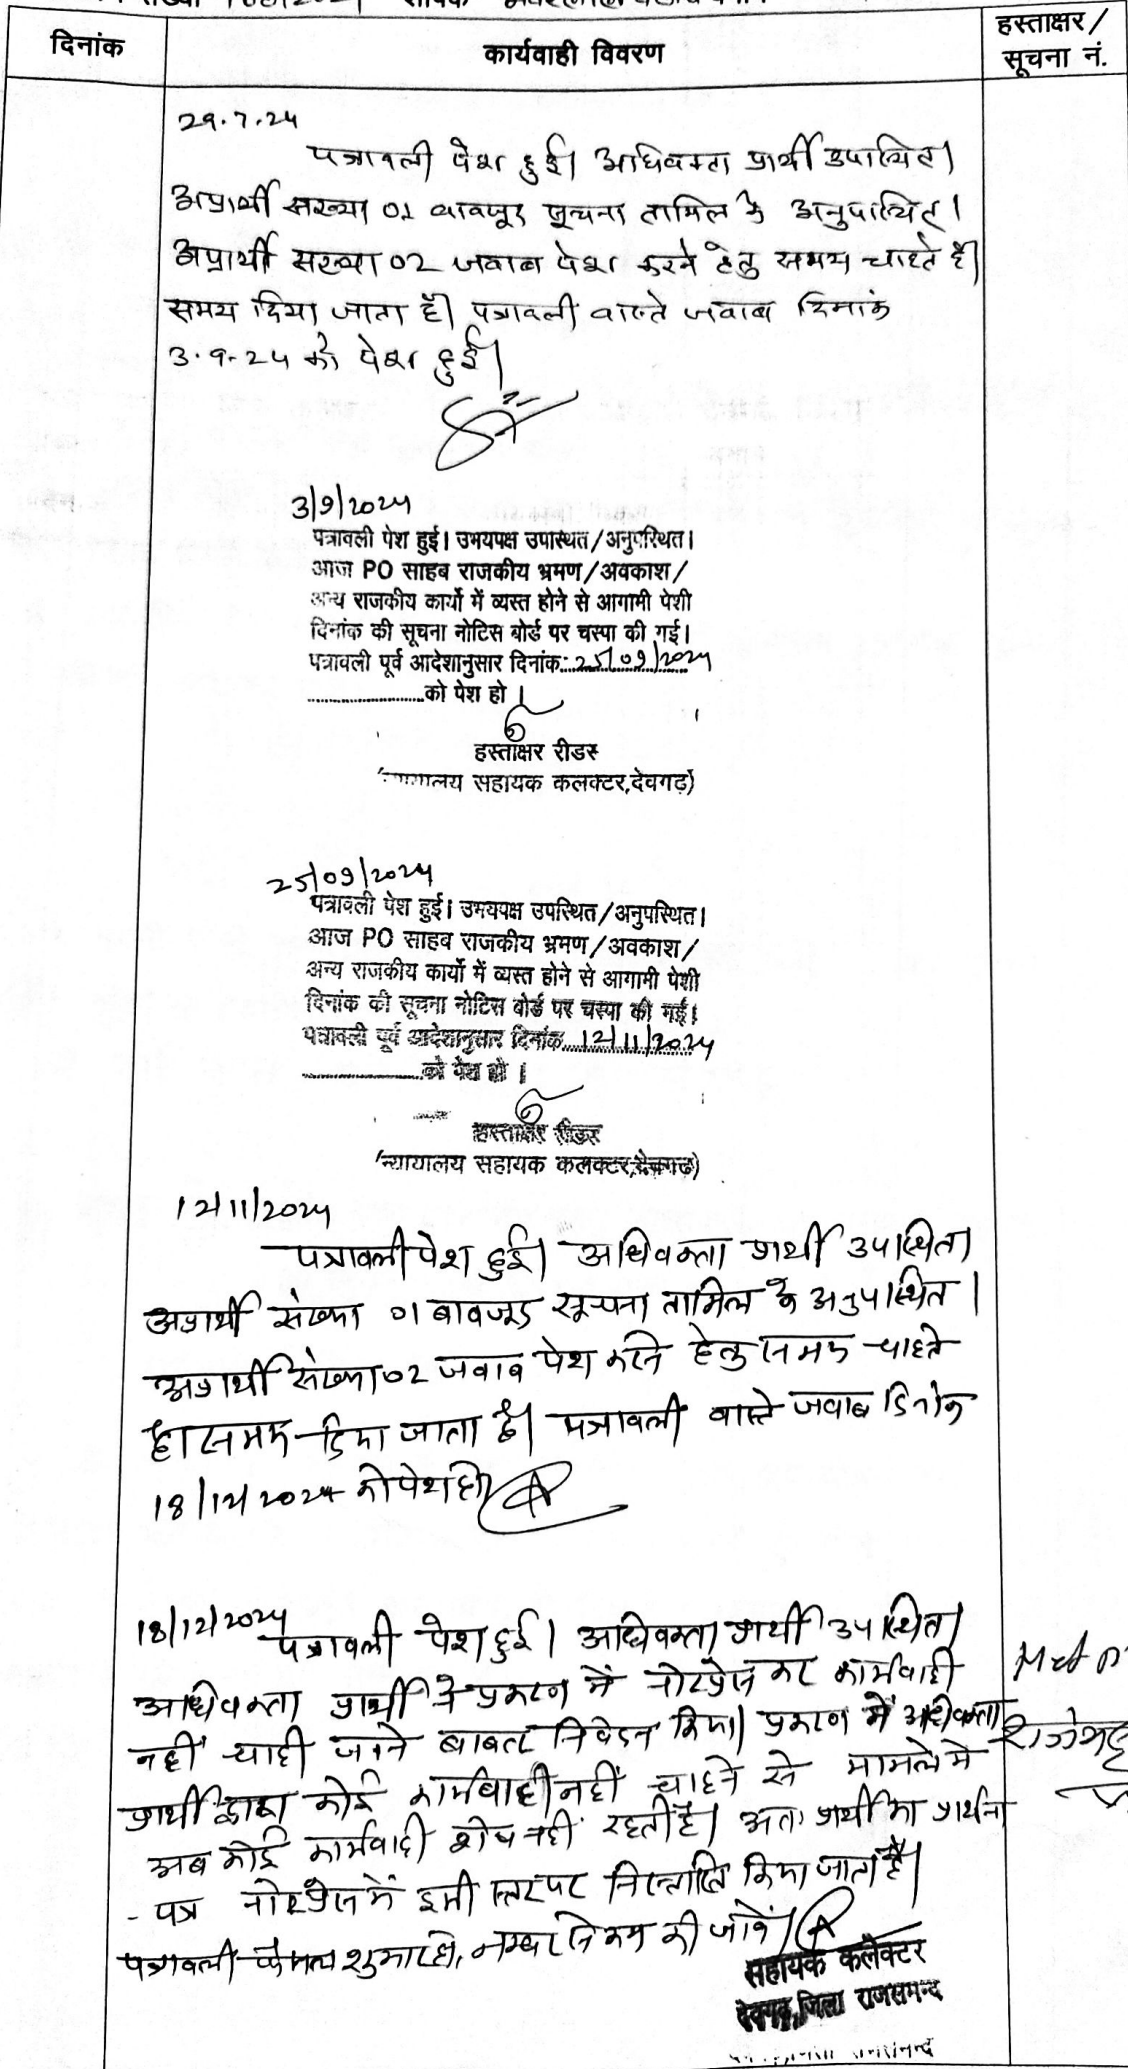 दिनांक
कार्यवाही विवरण
हस्ताक्षर/
सूचना नं.
29.7.24
पत्रावली पेश हुई। अधिवक्ता प्रार्थी उपस्थित।
अप्रार्थी संख्या 01 बावजूद सूचना तामिल के अनुपस्थित।
अप्रार्थी संख्या 02 जवाब पेश करने हेतु समय चाहते है।
समय दिया जाता है। पत्रावली वास्ते जवाब दिनांक
3.9.24 को पेश हुई।
3/9/2024
पत्रावली पेश हुई। उभयपक्ष उपस्थित/अनुपस्थित।
आज PO साहब राजकीय भ्रमण/अवकाश/
अन्य राजकीय कार्यो में व्यस्त होने से आगामी पेशी
दिनांक की सूचना नोटिस बोर्ड पर चस्पा की गई।
पत्रावली पूर्व आदेशानुसार दिनांक: 25/09/2024
........................को पेश हो।
हस्ताक्षर रीडर
(न्यायालय सहायक कलक्टर,देवगढ़)
25/09/2024
पत्रावली पेश हुई। उभयपक्ष उपस्थित/अनुपस्थित।
आज PO साहब राजकीय भ्रमण/अवकाश/
अन्य राजकीय कार्यो में व्यस्त होने से आगामी पेशी
दिनांक की सूचना नोटिस बोर्ड पर चस्पा की गई।
पत्रावली पूर्व आदेशानुसार दिनांक 12/11/2024
........................को पेश हो।
हस्ताक्षर रीडर
(न्यायालय सहायक कलक्टर,देवगढ़)
12/11/2024
पत्रावली पेश हुई। अधिवक्ता प्रार्थी उपस्थित।
अप्रार्थी संख्या 01 बावजूद सूचना तामिल के अनुपस्थित।
अप्रार्थी संख्या 02 जवाब पेश करने हेतु समय चाहते
है। समय दिया जाता है। पत्रावली वास्ते जवाब दिनांक
18/12/2024 को पेश हो।
18/12/2024
पत्रावली पेश हुई। अधिवक्ता प्रार्थी उपस्थित।
अधिवक्ता प्रार्थी ने प्रकरण में नोटप्रेस कर कार्यवाही
नहीं चाही जाने बाबत निवेदन किया। प्रकरण में अधिवक्ता
प्रार्थी द्वारा कोई कार्यवाही नहीं चाहने से मामले में
अब कोई कार्यवाही शेष नहीं रहती है। अतः प्रार्थी का प्रार्थना
-पत्र नोटप्रेस में इसी स्तर पर निस्तारित किया जाता है।
पत्रावली फैसल शुमार हो, नम्बर से कम की जावे।
सहायक कलेक्टर
देवगढ़,जिला राजसमन्द